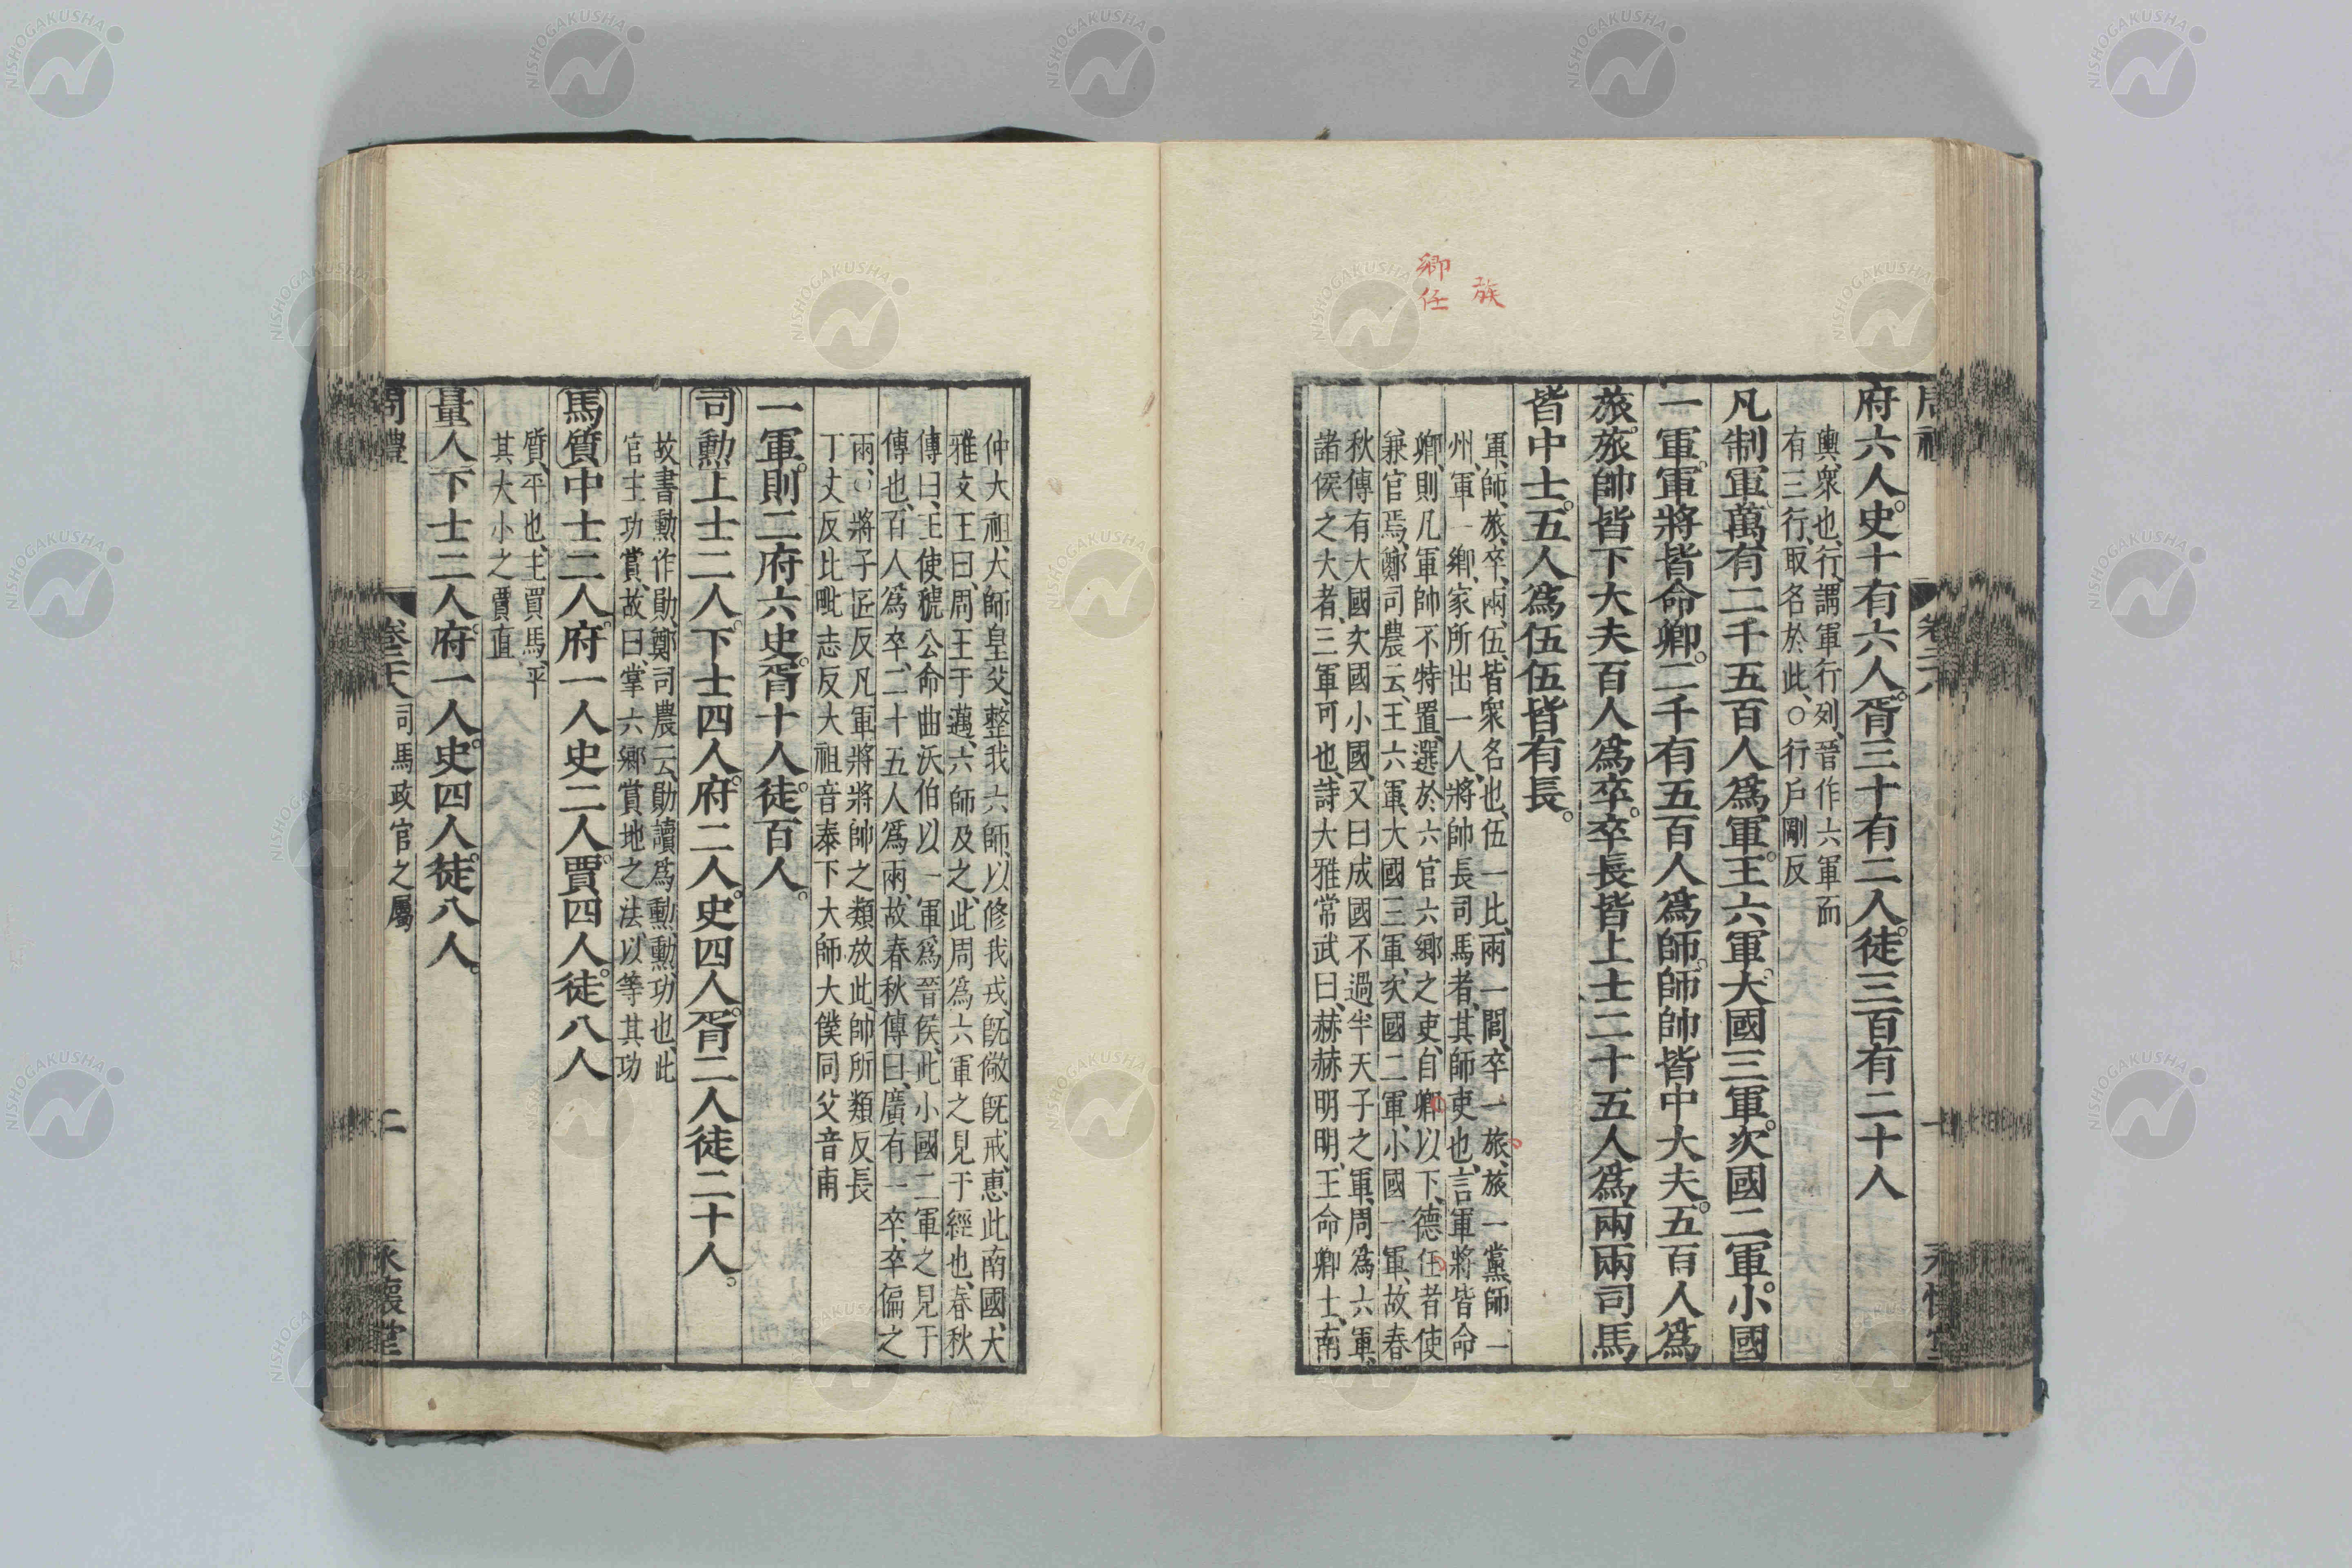 卿任
族
府六人史十有六人胥三十有二人徒三百有二十人
輿、衆也、行、謂軍行列、晉作六軍而
有三行、取名於此、○行戶剛反
凡制軍萬有二千五百人爲軍王六軍大國三軍次國二軍小國
一軍軍將皆命卿二千有五百人爲師師帥皆中大夫五百人爲
旅旅帥皆下大夫百人爲卒卒長皆上士二十五人爲兩兩司馬
皆中士五人爲伍伍皆有長
軍、師、旅、卒、兩、伍、皆衆名也、伍一比、兩一閭、卒一旅、旅一黨、師一
州、軍一鄉、家所出一人、將帥長司馬者、其師吏也、言軍將皆命
卿、則凡軍帥不特置、選於六官六鄉之吏、自卿以下、德任者使
兼官焉、鄭司農云、王六軍、大國三軍、次國二軍、小國一軍、故春
秋傳有大國次國小國、又曰成國不過半天子之軍、周爲六軍、
諸侯之大者、三軍可也、詩大雅常武曰、赫赫明明、王命卿士、南
仲大祖、大師皇父、整我六師、以修我戎、旣儆旣戒、惠此南國、大
雅文王曰、周王于邁、六師及之、此周爲六軍之見于經也、春秋
傳曰、王使虢公命曲沃伯以一軍爲晉侯、此小國一軍之見于
傳也、百人爲卒、二十五人爲兩、故春秋傳曰、廣有一卒、卒偏之
兩、○將子匠反凡軍將將帥之類放此、帥所類反長
丁丈反比毗志反大祖音泰下大師大僕同父音甫
一軍則二府六史胥十人徒百人
司勳上士二人下士四人府二人史四人胥二人徒二十人
故書勳作勛、鄭司農云、勛讀爲勳、勳、功也、此
官主功賞、故曰、掌六鄉賞地之法、以等其功
馬質中士二人府一人史二人賈四人徒八人
質、平也、主買馬、平
其大小之賈直
量人下士二人府一人史四人徒八人
周禮 卷二十八 司馬政官之屬 二 永懷堂